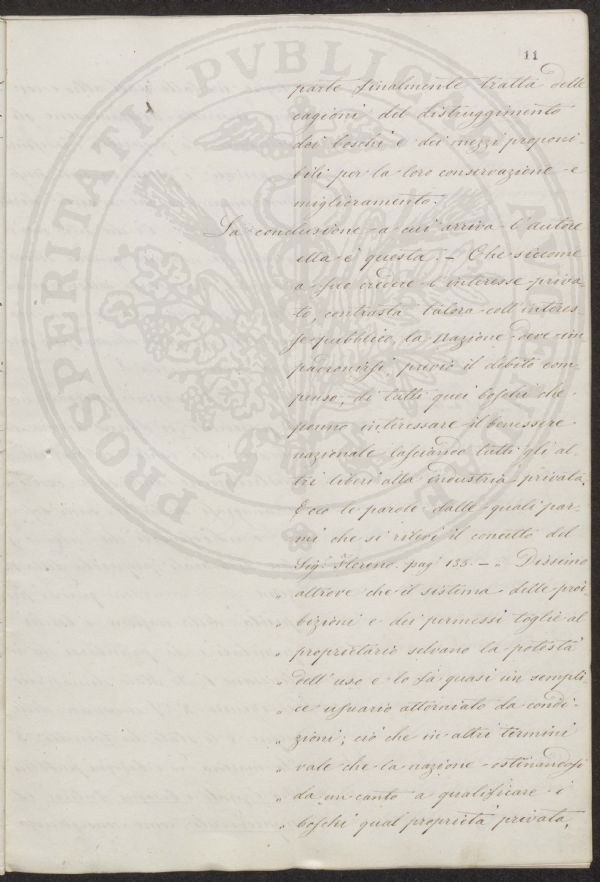 11
parte finalmente tratta delle
cagioni del distruggimento
dei boschi e dei mezzi proponi-
bili per la loro conservazione e
miglioramento.
La conclusione a cui arriva l'autore
ella è questa. — Che siccome
a suo credere l'interesse priva-
to, contrasta talora coll'interes-
se pubblico, la Nazione deve im
padronirsi, previo il debito com-
penso, di tutti quei boschi che
ponno interessare il benessere
nazionale lasciando tutti gli al-
tri liberi alla industria privata.
Ecco le parole dalle quali par-
mi che si rilevi il concetto del
Sig.r pag. 135. — „ Dissimo
„ altrove che il sistema delle proi
„ bizioni e dei permessi toglie al
„ proprietario selvano la potestà
„ dell'uso e lo fa quasi un sempli-
„ ce usuario attorniato da condi-
„ zioni; ciò che in altri termini
„ vale che la nazione ostinandosi
„ da un canto a qualificare i
„ boschi qual proprietà privata,
PROSPERITATI PVBLICAE AVGENDAE